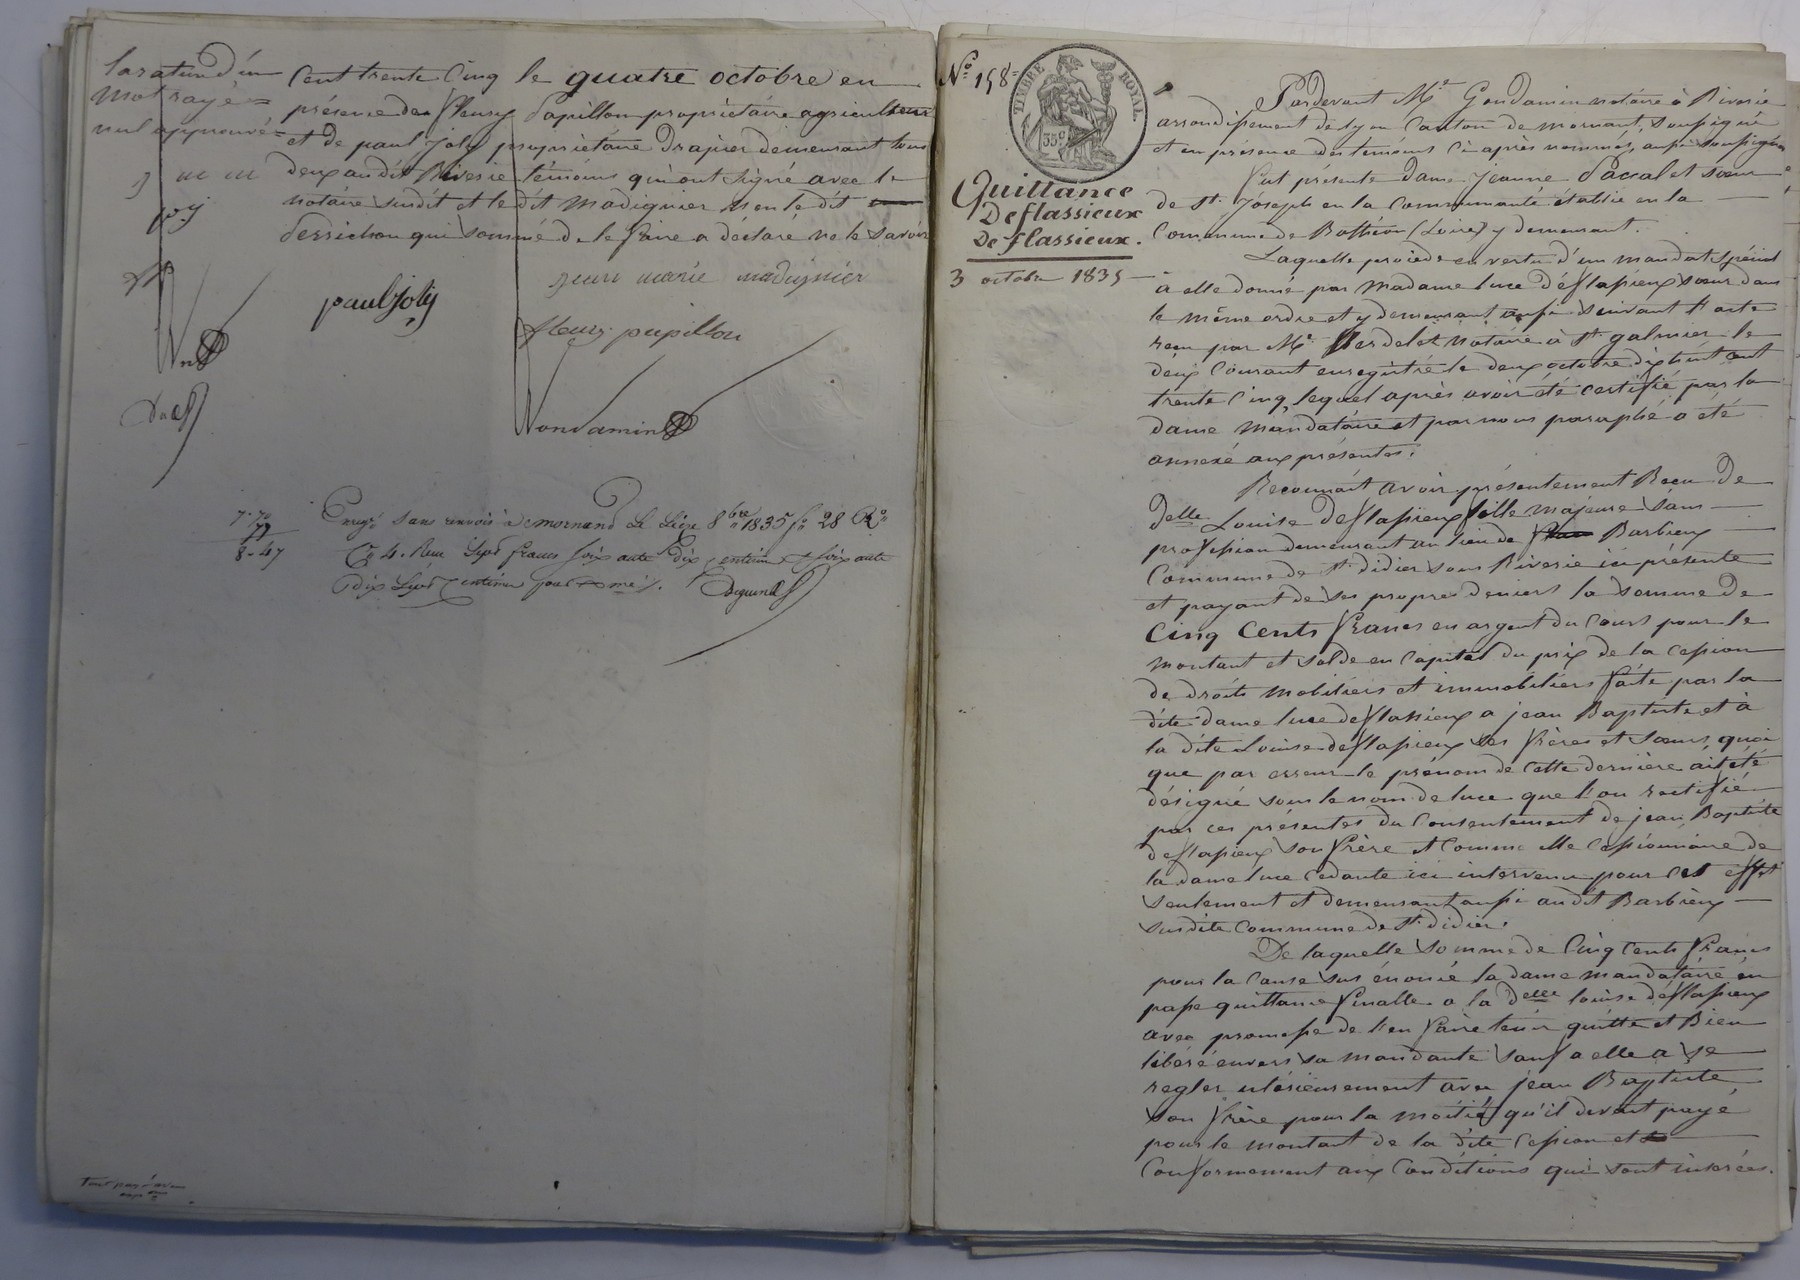 la rature d'un
mot rayé
nul approuvé
cent trente Cinq le quatre octobre en
présence de fleury Papillon propriétaire agriculteur
et de paul Joly propriétaire Drapier demeurant tous
deux au dit Riverie témoins qui ont signé avec le
notaire susdit et le dit Madignier non le dit
Perrichon qui sommé de le faire a déclaré ne le savoir
jean marie madignier
paul Joly
fleury papillon
Gondamin
7-70
77
8-47
Enregé sans renvoi à mornand le Seize 8bre 1835 fo 28 Ro
Cs 4. Reçu Sept francs soixante Dix centimes et soixante
Dix Sept centimes pour
Nº 158
TIMBRE ROYAL
35c
Quittance
Deflassieux
Deflassieux.
3 octobre 1835
Pardevant Me Gondamin notaire à Riverie
arrondissement de lyon Canton de mornant, soussigné
et en présence des temoins ci après nommés, aussi soussignés
fut presente dame jeanne Pascal et soeur
de St. Joseph en la Communauté établie en la
Commune de Bothéon (Loire) y demeurant.
Laquelle procède en vertu d'un mandat spécial
à elle donné par Madame luce Déflassieux soeur dans
le même ordre et y demeurant aussi suivant l'acte
recu par Me notaire à St galmier le
deux Courant enregistré le deux octobre dix huit cent
trente Cinq, lequel après avoir été certifié par la
dame mandataire et par nous paraphé a été
annexé aux présentes.
Reconnait avoir présentement Recu de
Delle Louise Deflassieux fille majeure sans
profession demeurant au lieu de Barbieux
Commune de St. didier sous Riverie ici présente
et payant de ses propres deniers la somme de
Cinq Cents francs en argent du Cours pour le
montant et solde en Capital du prix de la cession
de droits mobiliers et immobiliers faite par la
dite dame luce deflassieux a jean Baptiste et à
la dite Louise deflassieux ses frères et soeurs, quoi
que par erreur le prénom de cette dernière ait été
désigné sous le nom de luce que l'on rectifie
par ces présentes du Consentement de jean Baptiste
deflassieux son frère et comme elle cessionnaire de
la dame luce cedante ici intervenu pour cet effet
seulement et demeurant aussi au dit Barbieux
susdite commune de St. didier.
De laquelle somme de Cinq Cents francs
pour la Cause sus énoncé la dame mandataire en
passe quittance finalle a la Delle louise déflassieux
avec promesse de l'en faire tenir quitte et Bien
libéré envers sa mandante sauf a elle a se
regler ulérieurement avec jean Baptiste
son frère pour la moitié qu'il devait payé
pour le montant de la dite Cession et
Conformement aux Conditions qui sont insérées.